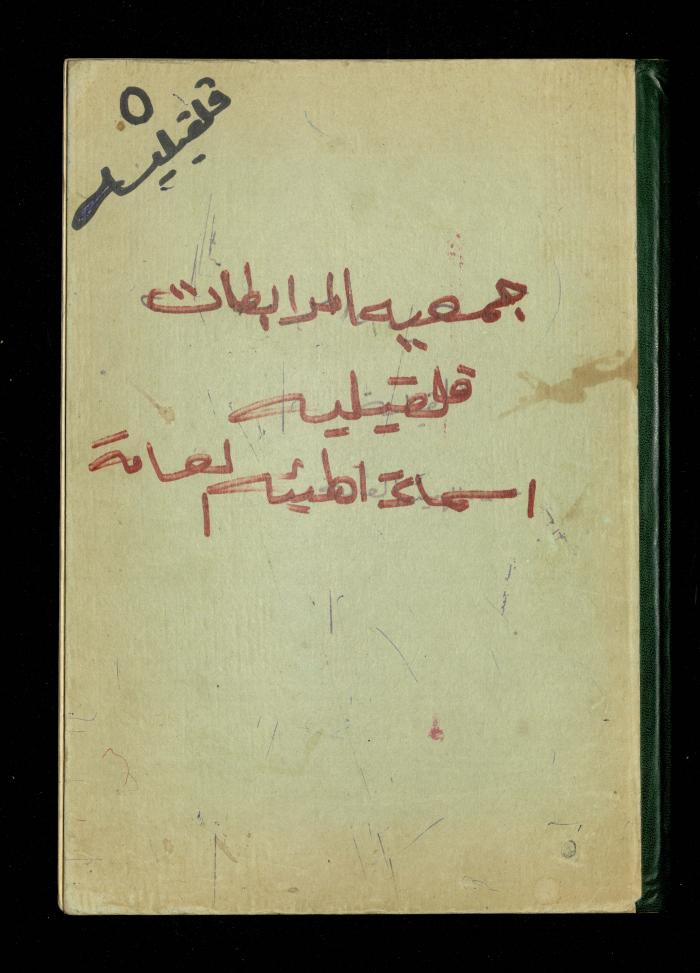 ٥
قلقيليه
جمعيه المرابطات
قلقيليه
اسماء الهيئه العامة